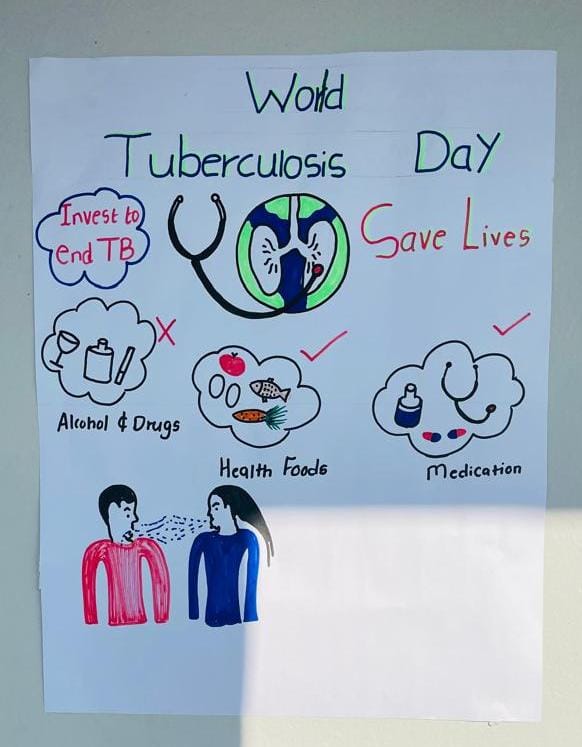 World
Tuberculosis Day
Invest to
end TB
Save Lives
Alcohol & Drugs
Health Foods
Medication